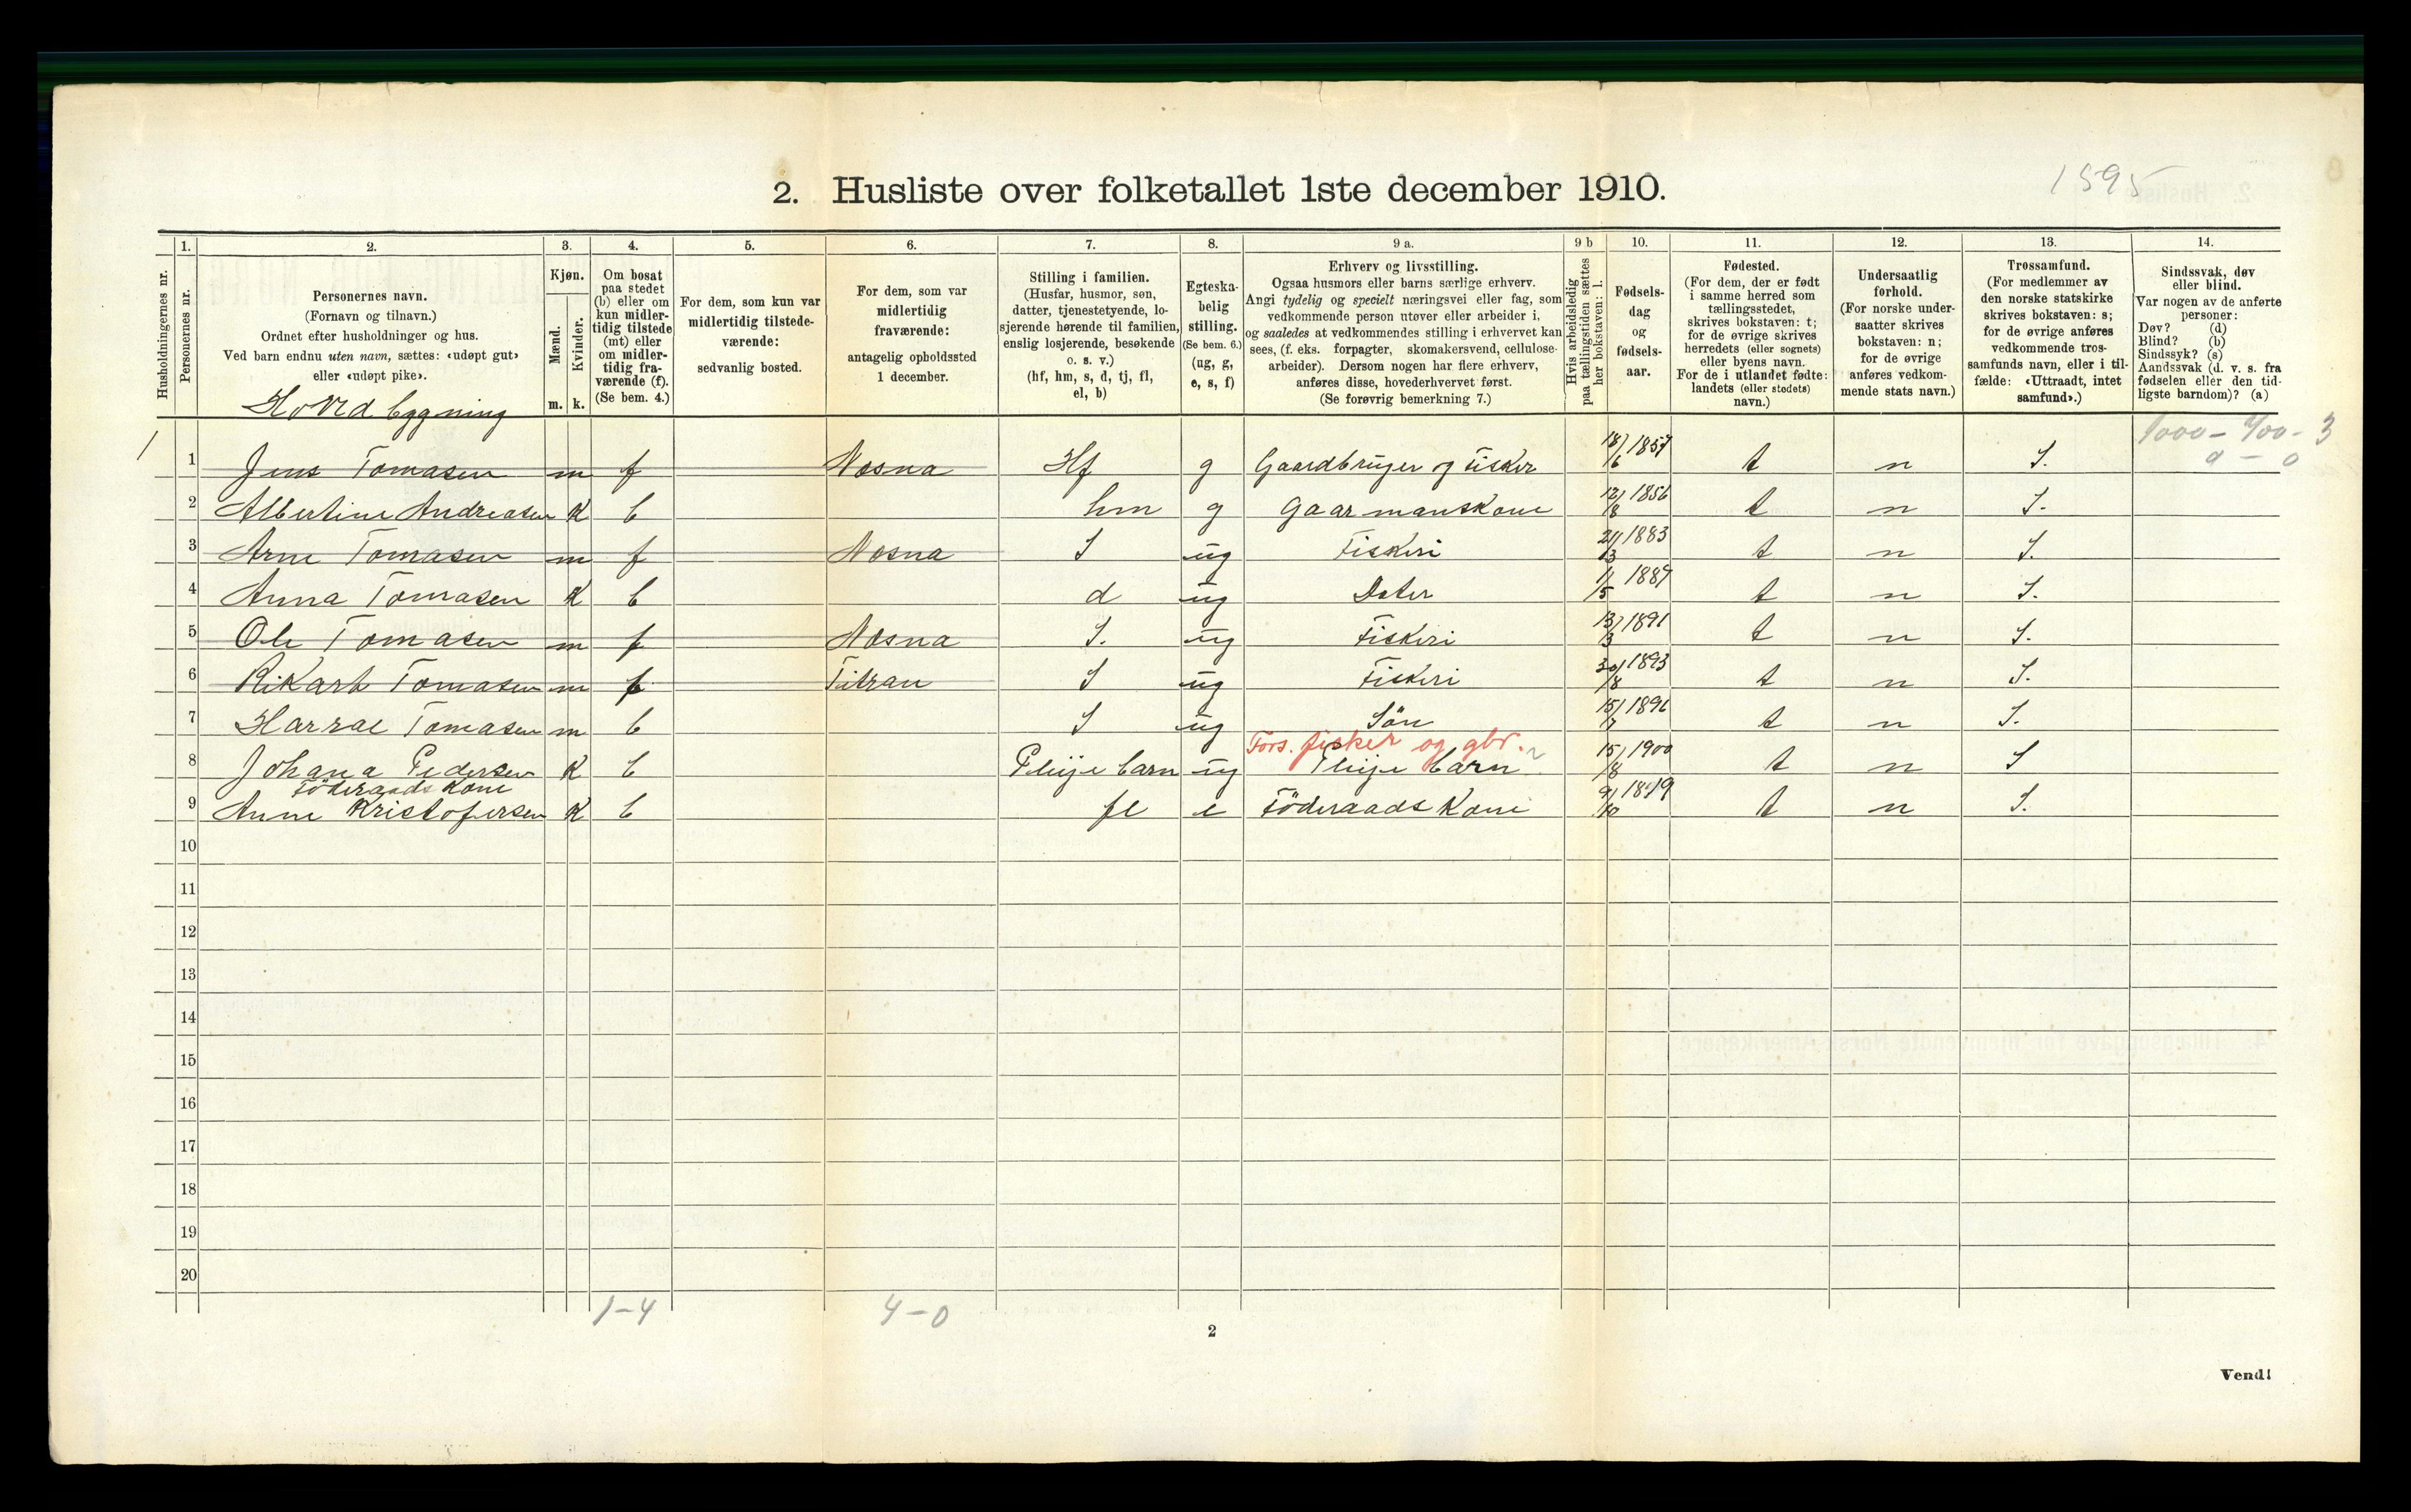 1595
2. Husliste over folketallet 1ste december 1910.
1. 2. 3. 4. 5. 6. 7. 8. 9 a. 9 b 10. 11. 12. 13. 14.
Husholdningernes nr.
Personernes nr.
Personernes navn.
(Fornavn og tilnavn.)
Ordnet efter husholdninger og hus.
Ved barn endnu uten navn, sættes: «udøpt gut»
eller «udøpt pike».
Hovedbygning
Kjøn.
Mænd.
Kvinder.
m. k.
Om bosat
paa stedet
(b) eller om
kun midler-
tidig tilstede
(mt) eller
om midler-
tidig fra-
værende (f).
(Se bem. 4.)
For dem, som kun var
midlertidig tilstede-
værende:
sedvanlig bosted.
For dem, som var
midlertidig
fraværende:
antagelig opholdssted
1 december.
Stilling i familien.
(Husfar, husmor, søn,
datter, tjenestetyende, lo-
sjerende hørende til familien,
enslig losjerende, besøkende
o. s. v.)
(hf, hm, s, d, tj, fl,
el, b)
Egteska-
belig
stilling.
(Se bem. 6.)
(ug, g,
e, s, f)
Erhverv og livsstilling.
Ogsaa husmors eller barns særlige erhverv.
Angi tydelig og specielt næringsvei eller fag, som
vedkommende person utøver eller arbeider i,
og saaledes at vedkommendes stilling i erhvervet kan
sees, (f. eks. forpagter, skomakersvend, cellulose-
arbeider). Dersom nogen har flere erhverv,
anføres disse, hovederhvervet først.
(Se forøvrig bemerkning 7.)
Hvis arbeidsledig
paa tællingstiden sættes
her bokstaven: l.
Fødsels-
dag
og
fødsels-
aar.
Fødested.
(For dem, der er født
i samme herred som
tællingsstedet,
skrives bokstaven: t;
for de øvrige skrives
herredets (eller sognets)
eller byens navn.
For de i utlandet fødte:
landets (eller stedets)
navn.)
Undersaatlig
forhold.
(For norske under-
saatter skrives
bokstaven: n;
for de øvrige
anføres vedkom-
mende stats navn.)
Trossamfund.
(For medlemmer av
den norske statskirke
skrives bokstaven: s;
for de øvrige anføres
vedkommende tros-
samfunds navn, eller i til-
fælde: «Uttraadt, intet
samfund».)
Sindssvak, døv
eller blind.
Var nogen av de anførte
personer:
Døv? (d)
Blind? (b)
Sindssyk? (s)
Aandssvak (d. v. s. fra
fødselen eller den tid-
ligste barndom)? (a)
1 1 Jens Tomasen m f Nosna Hf g Gaardbruger og Fisker 18/6 1857 t n S.
2 Albertine Andreasen K b hm g Gaarmanskone 12/8 1856 t n S.
3 Arne Tomasen m f Nosna S ug Fiskeri 21/3 1883 t n S.
4 Anna Tomasen K b d ug Dater 11/5 1889 t n S.
5 Ole Tomasen m f Nosna S. ug Fiskeri 13/3 1891 t n S.
6 Rikart Tomasen m f Titran S ug Fiskeri 30/8 1893 t n S.
7 Harral Tomasen m b S ug Sön 15/7 1896 t n S.
Fors. fisker og gbr.
8 Johana Pedersen K b Pleije barn ug Pleije barn 15/8 1900 t n S
Föderaads Kone
9 Anne Kristofersen K b fl e Föderaads Kone 9/10 1819 t n S.
10
11
12
13
14
15
16
17
18
19
20
1-4 4-0
2
Vend!